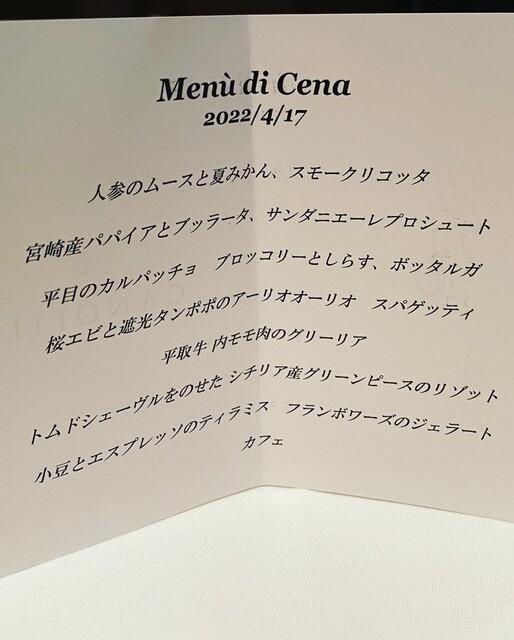 Menù di Cena
2022/4/17
人参のムースと夏みかん、スモークリコッタ
宮崎産パパイアとブッラータ、サンダニエーレプロシュート
平目のカルパッチョ ブロッコリーとしらす、ボッタルガ
桜エビと遮光タンポポのアーリオオーリオ スパゲッティ
平取牛 内モモ肉のグリーリア
トムドシェーヴルをのせた シチリア産グリーンピースのリゾット
小豆とエスプレッソのティラミス フランボワーズのジェラート
カフェ